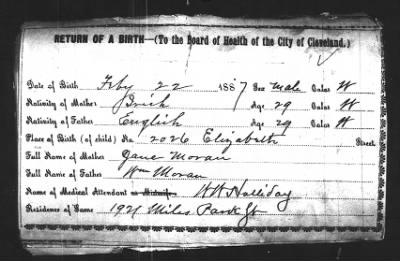 RETURN OF A BIRTH—(To the Board of Health of the City of Cleveland.)
Date of Birth Feby 22 1887 Sex Male Color W
Nativity of Mother Irish Age 29 Color W
Nativity of Father English Age 29 Color W
Place of Birth (of child) No. 2026 Elizabeth Street
Full Name of Mother Jane Moran
Full Name of Father Wm Moran
Name of Medical Attendant or Midwife W Holliday
Residence of Same 1921 Miles Park St